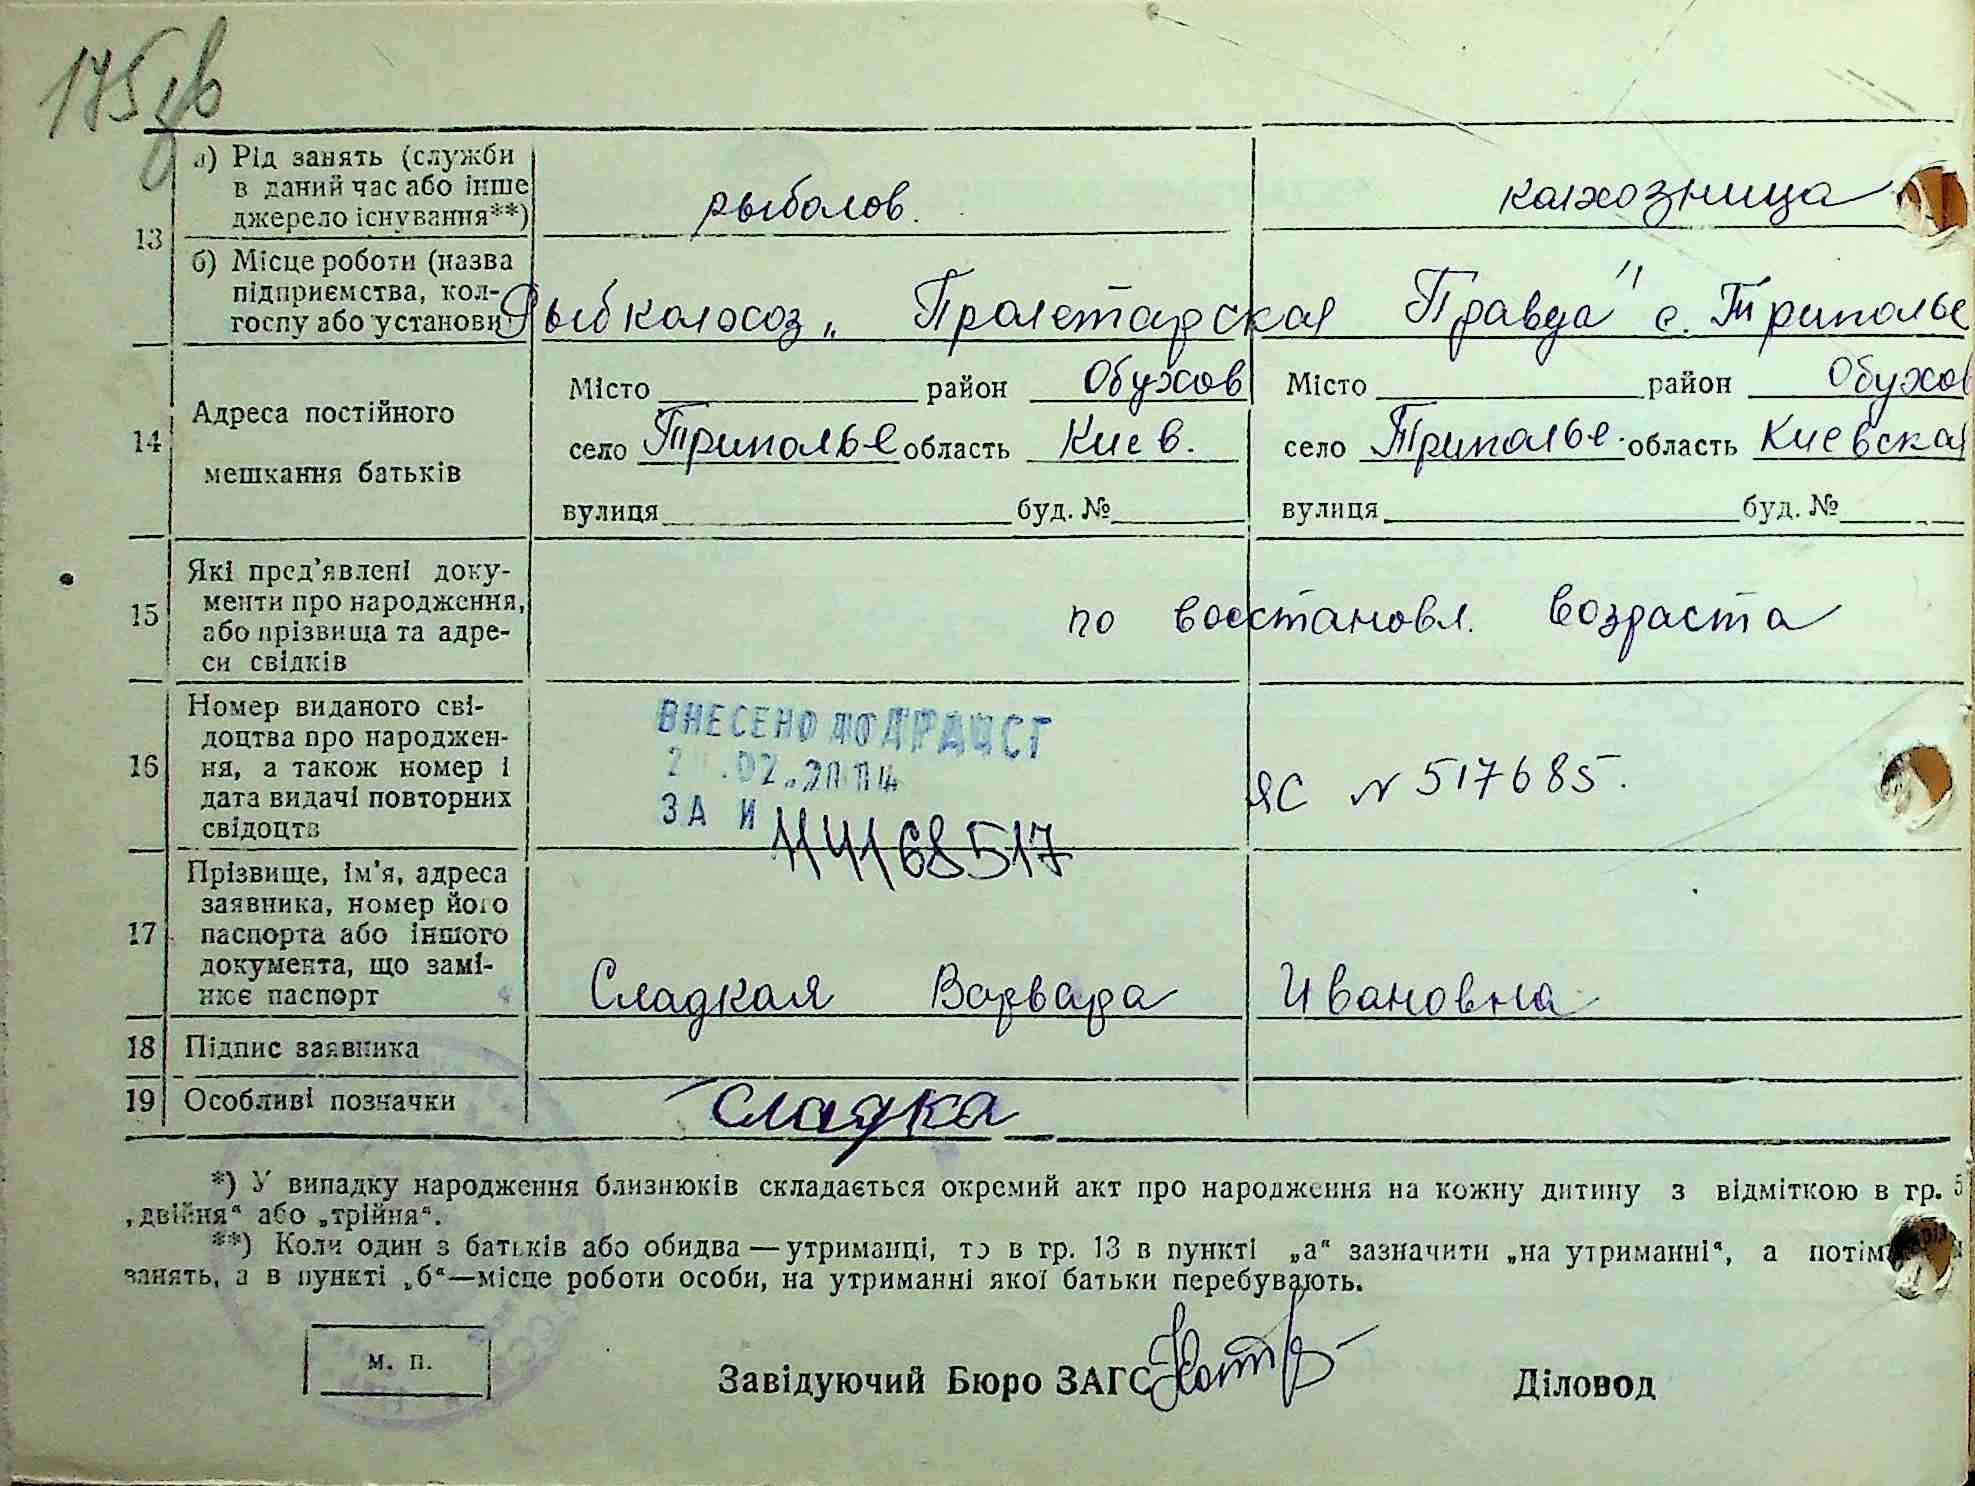 175
13 а) Рід занять (служби в даний час або інше джерело існування**)
рыболов.
колхозница
б) Місце роботи (назва підприємства, колгоспу або установи
Рыбколосоз „ Пролетарская Правда" с. Триполье
14 Адреса постійного мешкання батьків
Місто район Обухов
село Триполье область Киев.
вулиця буд. №
Місто район Обухов
село Триполье. область Киевская
вулиця буд. №
15 Які пред'явлені документи про народження, або прізвища та адреси свідків
по восстановл. возраста
16 Номер виданого свідоцтва про народження, а також номер і дата видачі повторних свідоцтв
ВНЕСЕНО ДО ДРАЦСГ
.02.2014
ЗА №
114168517
ЯС № 517685.
17 Прізвище, ім'я, адреса заявника, номер його паспорта або іншого документа, що замінює паспорт
Сладкая Варвара Ивановна
18 Підпис заявника
19 Особливі позначки
Сладка
*) У випадку народження близнюків складається окремий акт про народження на кожну дитину з відміткою в гр. 5
„двійня" або „трійня".
**) Коли один з батьків або обидва — утриманці, то в гр. 13 в пункті „а" зазначити „на утриманні", а потім
занять, а в пункті „б"—місце роботи особи, на утриманні якої батьки перебувають.
м. п.
Завідуючий Бюро ЗАГС
Діловод